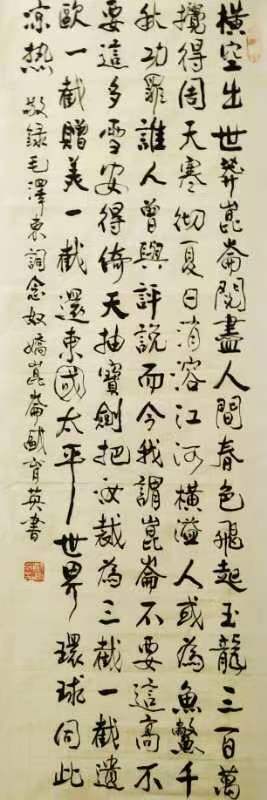 橫空出世莽崑崙閱盡人間春色飛起玉龍三百萬
攪得周天寒彻夏日消溶江河橫溢人或為魚鱉千
秋功罪誰人曾與評說而今我謂崑崙不要這高不
要這多雪安得倚天抽寶劍把汝裁為三截一截遺
歐一截贈美一截還東國太平世界環球同此
涼热
敬録毛澤東詞念奴嬌崑崙育英書